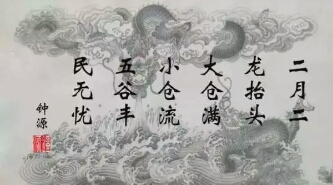 二月二
龙抬头
大仓满
小仓流
五谷丰
民无忧
钟源